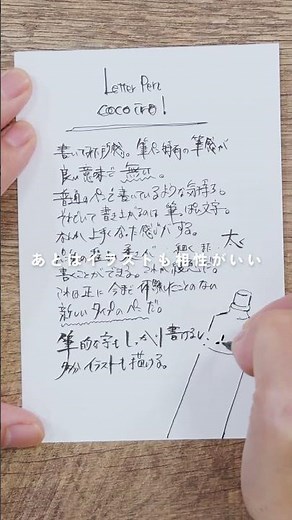 Letter Pen
COCOIRO!
書いてみた感想。筆ペン特有の筆感が
良い意味で無い。
普通のペンで書いているような気持ち。
それでいて書き上がるのは筆っぽい文字。
太
あとはイラストも相性がいい
書くことができる。
これは正に今まで体験したことのない
新しいタイプのペンだ。
筆的な字もしっかり書けるし
多分イラストも描ける。